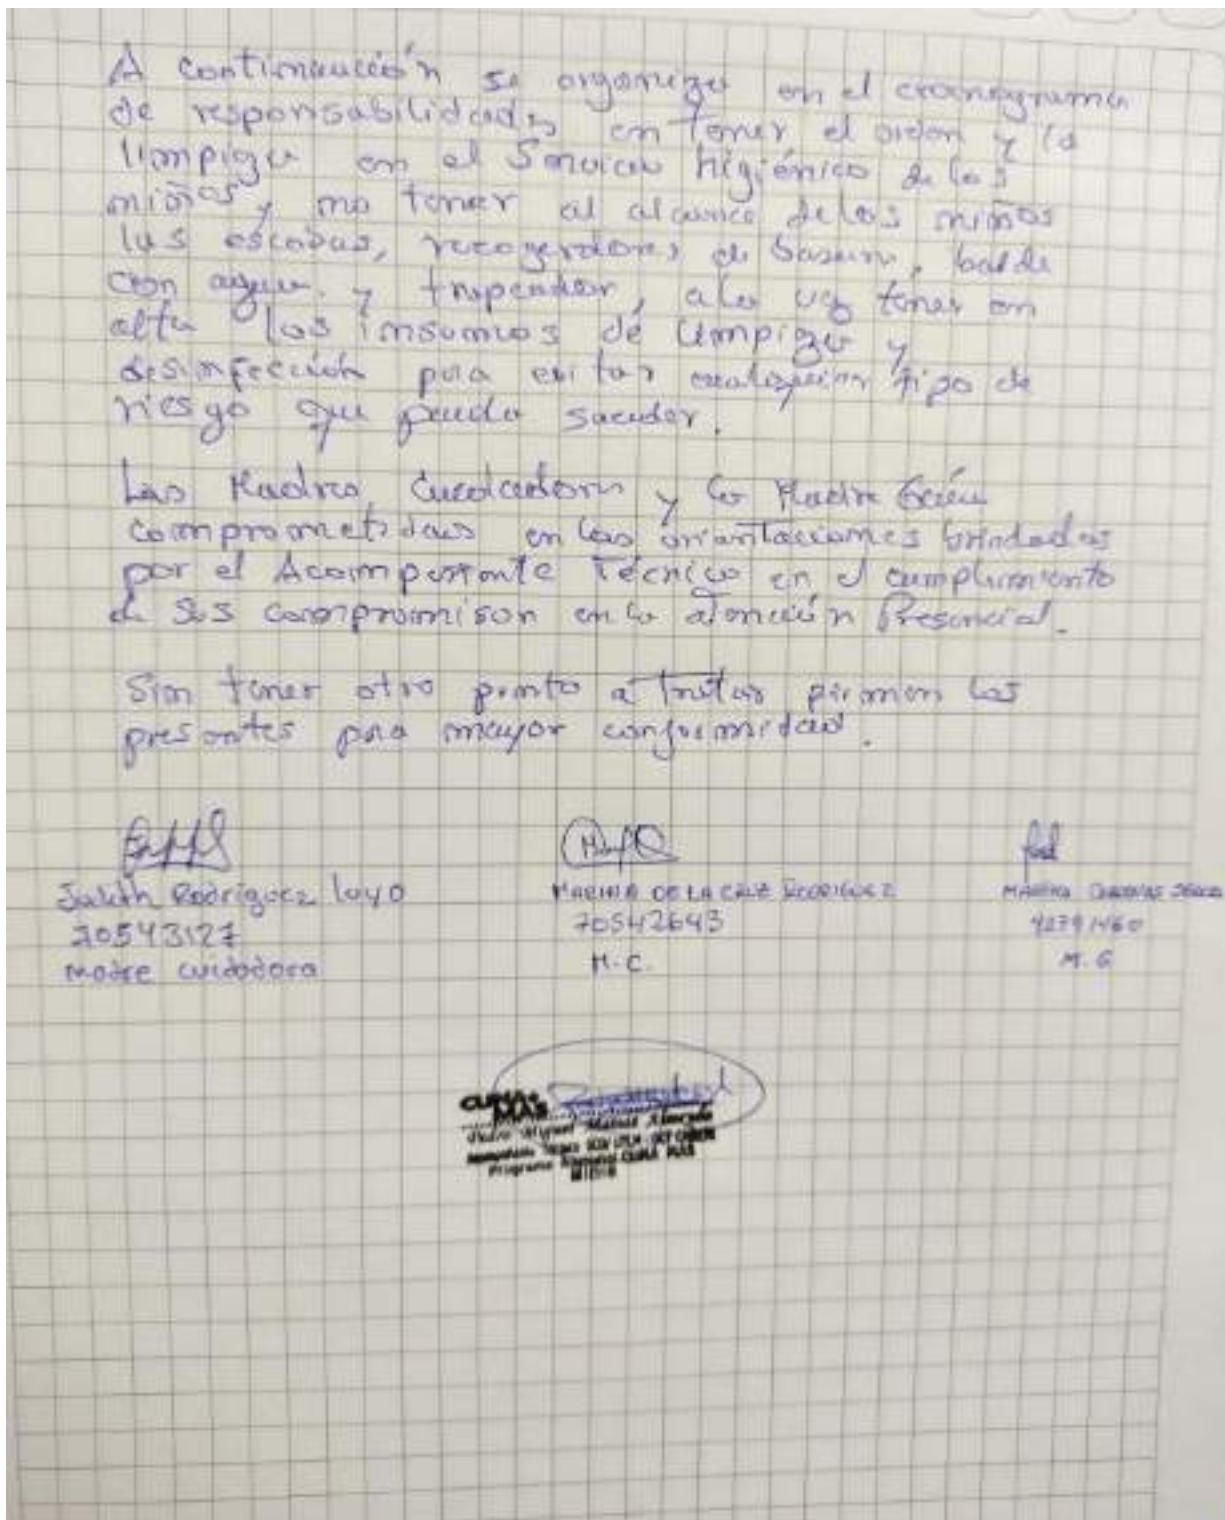 A continuación se organiza en el cronograma
de responsabilidades en tener el orden y la
limpieza en el Servicio higiénico de los
niños, no tener al alcance de los niños
las escobas, recogedores de basura, balde
con agua y trapeador, a la vez tener en
alto los insumos de limpieza y
desinfección para evitar cualquier tipo de
riesgo que pueda suceder.
Las Madres Cuidadoras y la Madre Guía
comprometidas en las orientaciones brindadas
por el Acompañante Técnico en el cumplimiento
de sus compromisos en la atención Presencial.
Sin tener otro punto a tratar firman los
presentes para mayor conformidad.
Judith Rodriguez Loyo
70543127
Madre cuidadora
MARINA DE LA CRUZ RODRIGUEZ
70542643
M.C.
MARINA CARDENAS
42791460
M.G
CUNA
MAS
Miguel
Programa Nacional CUNA MAS
MIDIS